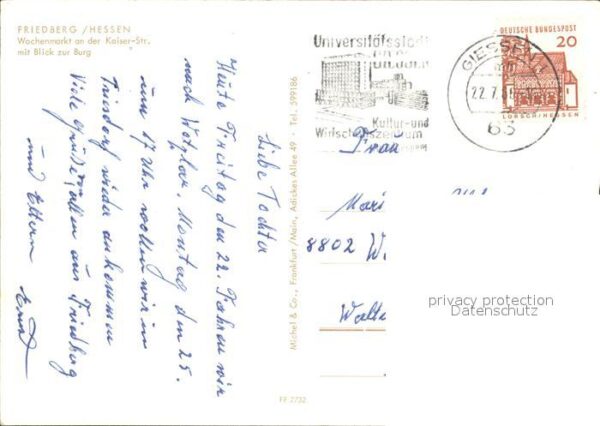 FRIEDBERG / HESSEN
Wochenmarkt an der Kaiser-Str.,
mit Blick zur Burg
Liebe Tochter
Heute Freitag den 22. Fahren wir
nach Wetzlar. Montag den 25.
um 17 Uhr wollen wir in
Triesdorf wieder ankommen
Viele Grüße allen aus Friedberg
und Eltern Ernst
Michel & Co., Frankfurt/Main, Adickes Allee 49 - Tel. 599186
FF 2732
Universitätsstadt
GIESSEN
Kultur- und
Wirtschaftszentrum
GIESSEN
22.7.
63
DEUTSCHE BUNDESPOST
20
LORSCH/HESSEN
Frau
Mari
8802 W.
Walte
privacy protection
Datenschutz